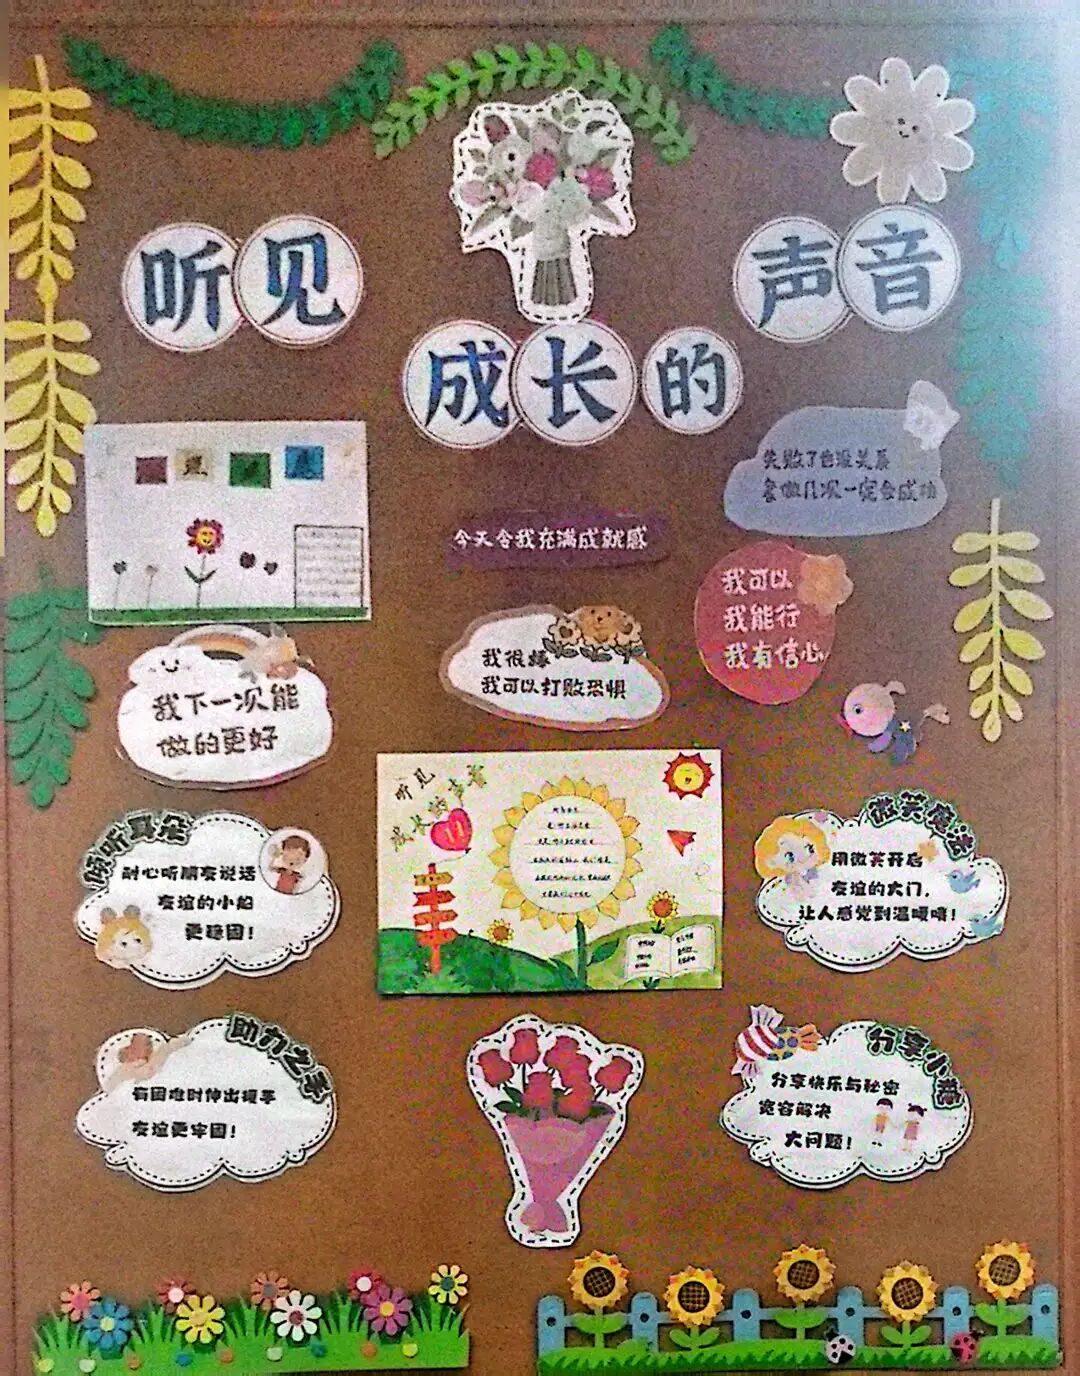 听见
声音
成长的
失败了也没关系
多做几次一定会成功
今天令我充满成就感
我可以
我能行
我有信心
我很棒
我可以打败恐惧
我下一次能
做的更好
听见
成长的声音
倾听耳朵
耐心听朋友说话
友谊的小船
更稳固！
微笑魔法
用微笑开启
友谊的大门，
让人感觉到温暖哦！
助力之手
有困难时伸出援手
友谊更牢固！
分享小熊
分享快乐与秘密
宽容解决
大问题！